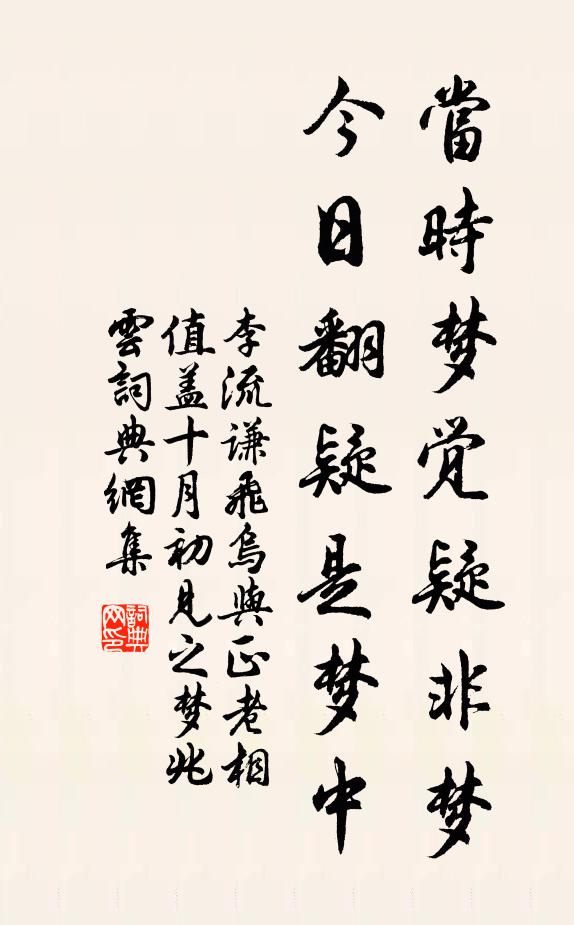 當時梦觉疑非梦
今日翻疑是梦中
李流谦飛烏與正老相
值盖十月初見之梦兆
雲詞典網集
詞典
网印